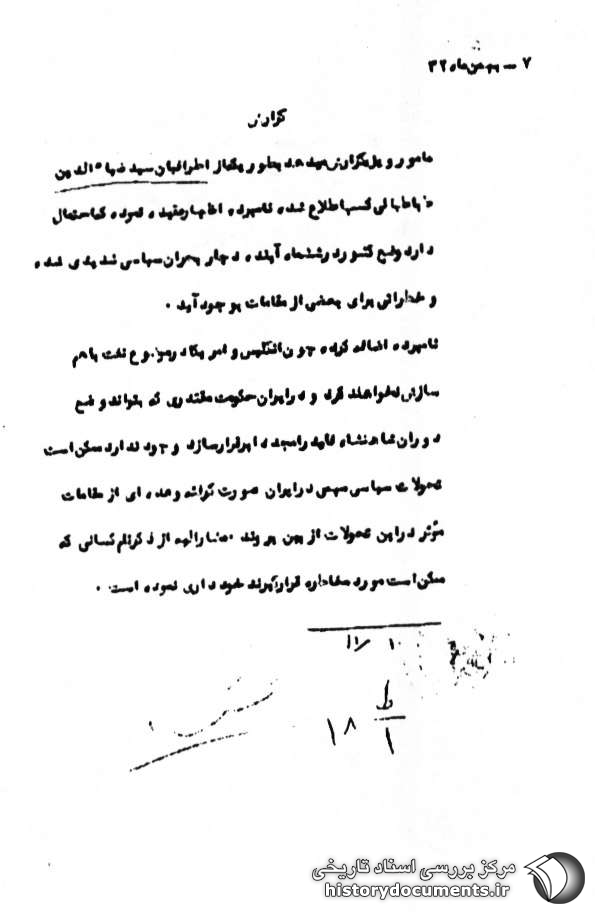 ۷ – بهمن ماه ۳۲
گزارش
مامور ویژه گزارش میدهد بطوریکه از اطرافیان سید ضیاءالدین
طباطبائی کسب اطلاع شده نامبرده اظهار عقیده نموده که احتمال
دارد وضع کشور در ششماه آینده دچار بحران سیاسی شدیدی شده
و خطراتی برای بعضی از مقامات بوجود آید .
نامبرده اضافه کرده چون انگلیس و امریکا در موضوع نفت باهم
سازش نخواهند کرد و در ایران حکومت مقتدری که بتواند وضع
دوران شاهنشاه فقید را مجددا برقرار سازد وجود ندارد ممکن است
تحولات سیاسی مهمی در ایران صورت گرفته و عده ای از مقامات
مؤثر در این تحولات از بین بروند . مشارالیه از ذکر نام کسانی که
ممکن است مورد مخاطره قرار گیرند خودداری نموده است .
۱۰ ۱۱
ط
۱ ۱۸
مرکز بررسی اسناد تاریخی
historydocuments.ir